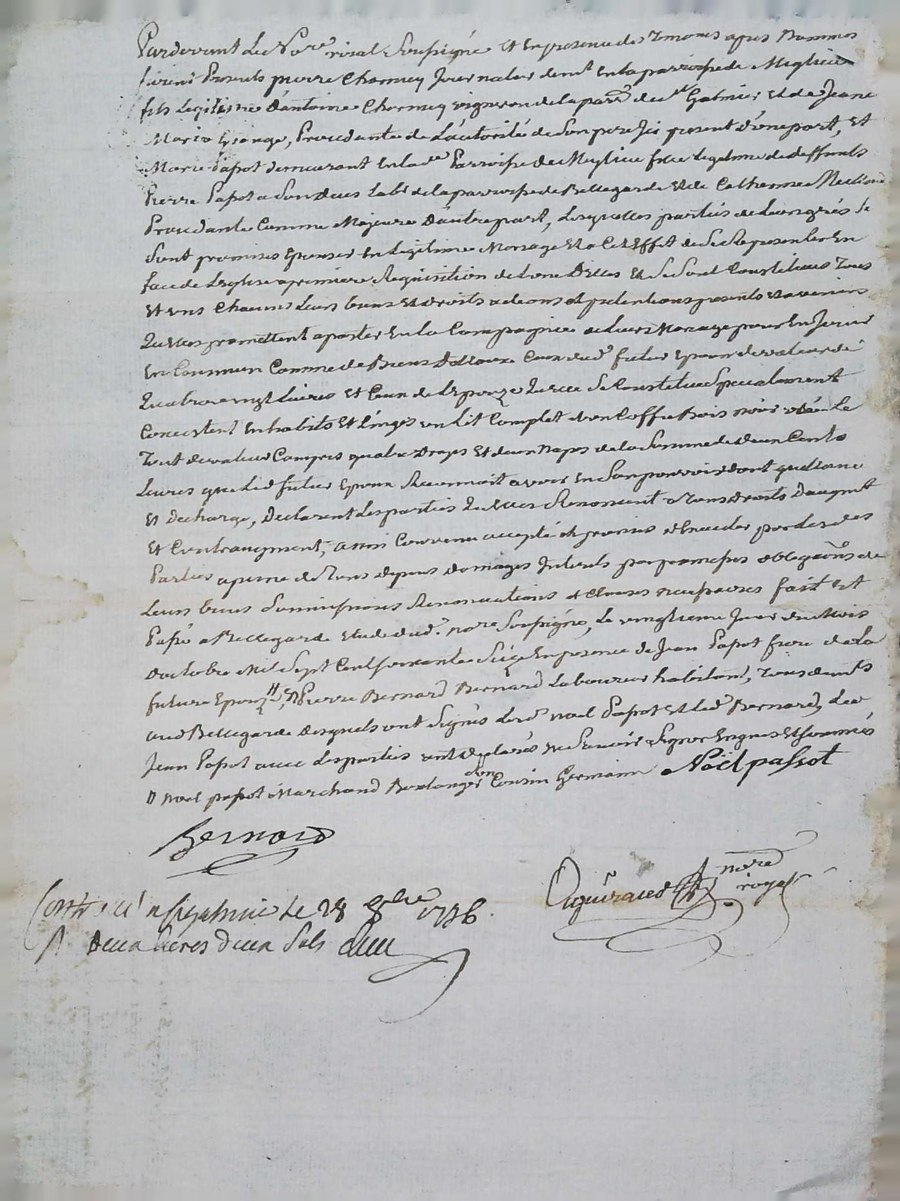 Pardevant Le No.re royal Soussigné Et En presence de Temoins apres Nommés
furent Presents pierre Charmey Journalier dem.t En la parroisse de Meylieu
fils Legitime d'antoine Charmey vigneron de la parr.e de s.t Galmier Et de Jeane
Marie Grange, Proceddante de L'autorité de Son pere Ici present d'une part, Et
Marie Papot demeurant En la d.e Parroisse de Meylieu fille Legitime de deffunts
Pierre Papot a Son vivant Lab.r de la parroisse de Bellegarde Et de Catherine
Proceddante Comme Majeure D'autre part, Lesquelles parties de Leur gré Se
Sont promises Epouser En Legitime Mariage Et a Cet Effet de Se Representer En
face de L'eglise a premiere Requisition de L'une D'elles Et Se Sont Constitués Tous
Et uns Chacuns Leurs biens Et droits actions et pretentions presents Et avenirs
Qu'elles promettent aporter En La Compagnie de Leur Mariage pour En Jouir
En Commun Comme de Biens Dotaux Ceux du d. futur Epoux de valeur de
Quatre vingt Livres Et Ceux de L'epouze Qu'elle Se Constitue Specialement
Consistent En habits Et Linges un Lit Complet d'un Coffre Bois noir
Tout de valeur Compris quatre Draps Et deux Napes de la Somme de Deux Cents
Livres que Le d. futur Epoux Reconnoit avoir En Son pouvoir dont quittance
Et decharge, Declarent Les parties Qu'elles Renoncent a Tous Droits D'augment
Et Contraugment, ainsi Convenu accepté et promis Executer par Les d.es
Parties a peine de Tous depens domages Interets par promesses obligations de
Leurs biens Soumissions Renonciations et Clauses necessaires fait Et
Passé a Bellegarde Etude du d. no.re Soussigné, Le vingtieme Jour du Mois
D'octobre Mil Sept Cent Soixante Seize En presence de Jean Papot frere de la
future Epouze, Pierre Bernard Bernard Laboureur habitant, Tous dem.ts
aud Bellegarde Desquels ont Signés Le d. noel Papot Et Le d. Bernard, Led
Jean Papot avec Les parties ont declarés ne Scavoir Signer Enquis Et Sommés
// noel papot Marchand Boulanger Son Cousin Germain Noël passot
Bernard
no.re
royal
Contr.é a S.t galmier Le 28 8bre 1776
R. Deux Livres deux Sols